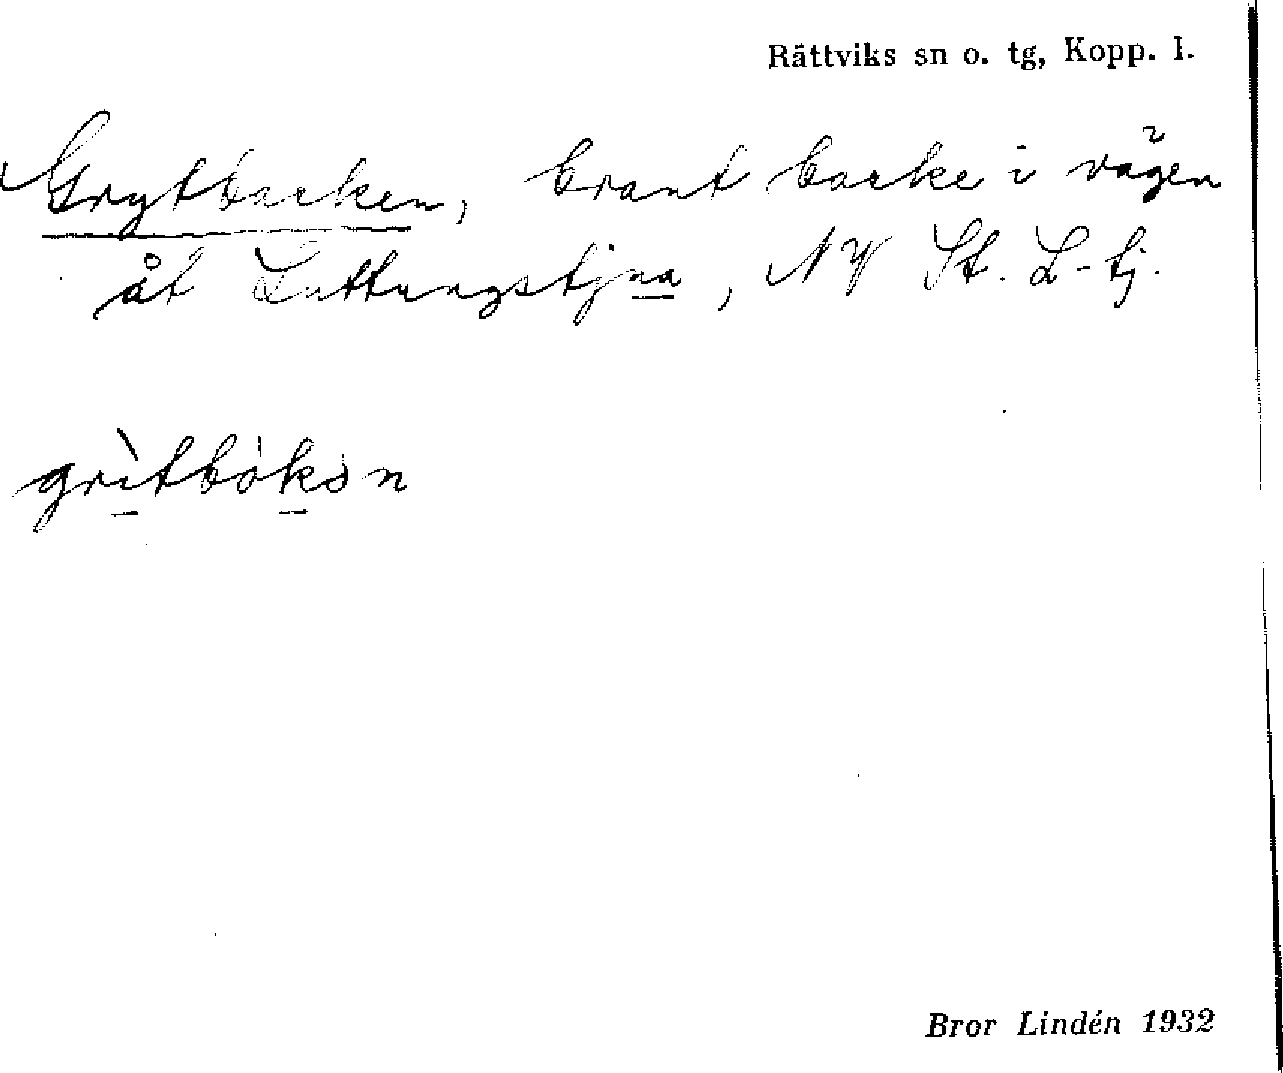 Rättviks sn o. tg, Kopp. l.
Grytbacken, brant backe i vägen
åt Luttungstjna, NV St. L-tj.
gritbòkǝn
Bror Lindén 1932